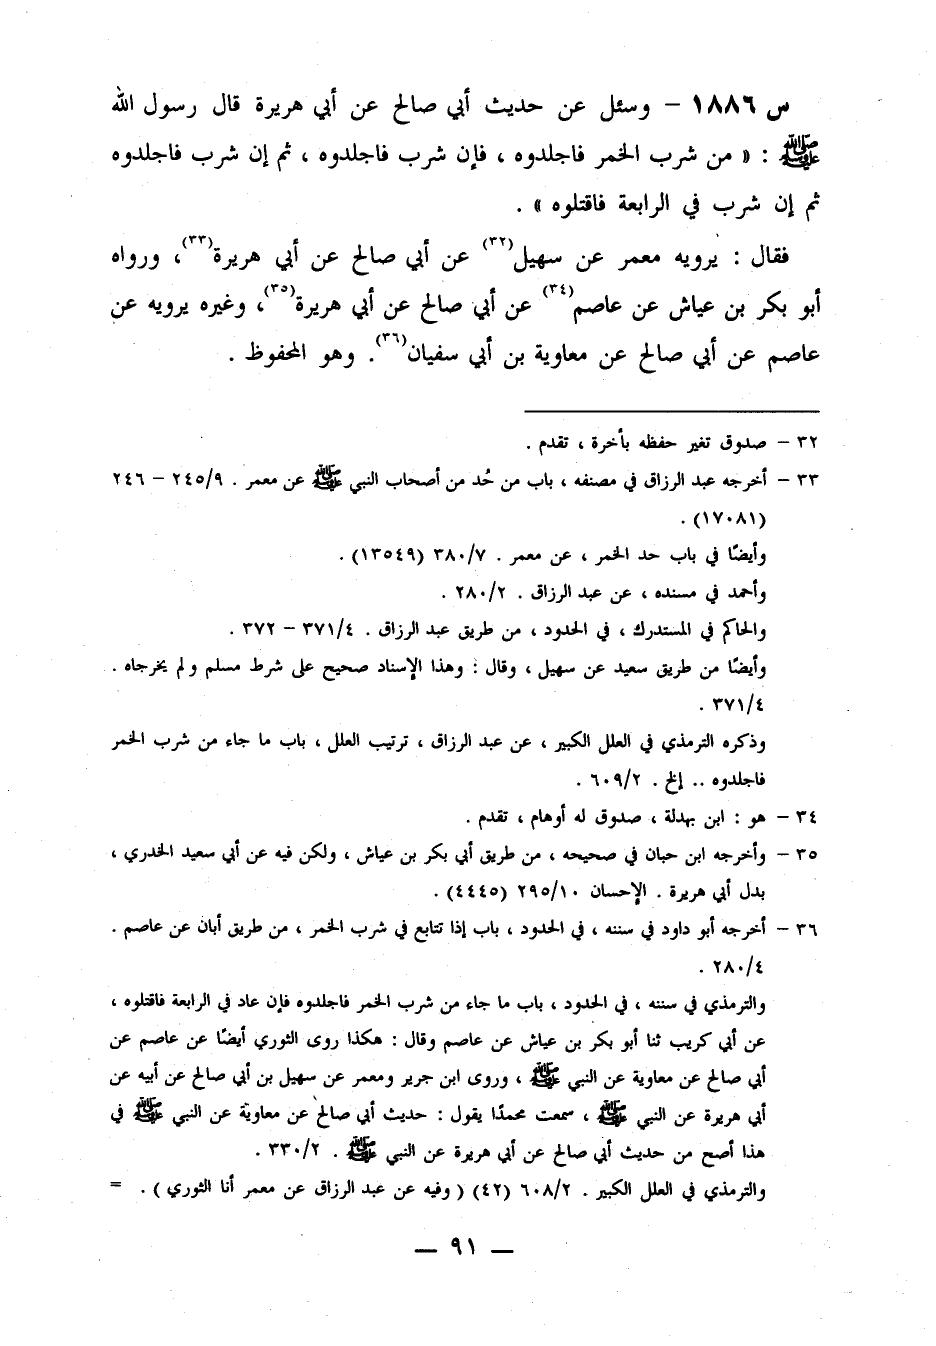 س ١٨٨٦ – وسئل عن حديث أبي صالح عن أبي هريرة قال رسول الله
ﷺ : « من شرب الخمر فاجلدوه ، فإن شرب فاجلدوه ، ثم إن شرب فاجلدوه
ثم إن شرب في الرابعة فاقتلوه » .
فقال : يرويه معمر عن سهيل(٣٢) عن أبي صالح عن أبي هريرة(٣٣)، ورواه
أبو بكر بن عياش عن عاصم(٣٤) عن أبي صالح عن أبي هريرة(٣٥)، وغيره يرويه عن
عاصم عن أبي صالح عن معاوية بن أبي سفيان(٣٦). وهو المحفوظ .
٣٢ – صدوق تغير حفظه بأخرة ، تقدم .
٣٣ – أخرجه عبد الرزاق في مصنفه ، باب من حُد من أصحاب النبي ﷺ عن معمر . ٢٤٥/٩ – ٢٤٦
(١٧٠٨١) .
وأيضًا في باب حد الخمر ، عن معمر . ٣٨٠/٧ (١٣٥٤٩) .
وأحمد في مسنده ، عن عبد الرزاق . ٢٨٠/٢ .
والحاكم في المستدرك ، في الحدود ، من طريق عبد الرزاق . ٣٧١/٤ – ٣٧٢ .
وأيضًا من طريق سعيد عن سهيل ، وقال : وهذا الإسناد صحيح على شرط مسلم ولم يخرجاه .
٣٧١/٤ .
وذكره الترمذي في العلل الكبير ، عن عبد الرزاق ، ترتيب العلل ، باب ما جاء من شرب الخمر
فاجلدوه .. إلخ . ٦٠٩/٢ .
٣٤ – هو : ابن بهدلة ، صدوق له أوهام ، تقدم .
٣٥ – وأخرجه ابن حبان في صحيحه ، من طريق أبي بكر بن عياش ، ولكن فيه عن أبي سعيد الخدري ،
بدل أبي هريرة . الإحسان ٢٩٥/١٠ (٤٤٤٥) .
٣٦ – أخرجه أبو داود في سننه ، في الحدود ، باب إذا تتابع في شرب الخمر ، من طريق أبان عن عاصم .
٢٨٠/٤ .
والترمذي في سننه ، في الحدود ، باب ما جاء من شرب الخمر فاجلدوه فإن عاد في الرابعة فاقتلوه ،
عن أبي كريب ثنا أبو بكر بن عياش عن عاصم وقال : هكذا روى الثوري أيضًا عن عاصم عن
أبي صالح عن معاوية عن النبي ﷺ ، وروى ابن جرير ومعمر عن سهيل بن أبي صالح عن أبيه عن
أبي هريرة عن النبي ﷺ ، سمعت محمدًا يقول : حديث أبي صالح عن معاوية عن النبي ﷺ في
هذا أصح من حديث أبي صالح عن أبي هريرة عن النبي ﷺ . ٣٣٠/٢ .
والترمذي في العلل الكبير . ٦٠٨/٢ (٤٢) ( وفيه عن عبد الرزاق عن معمر أنا الثوري ) . =
— ٩١ —